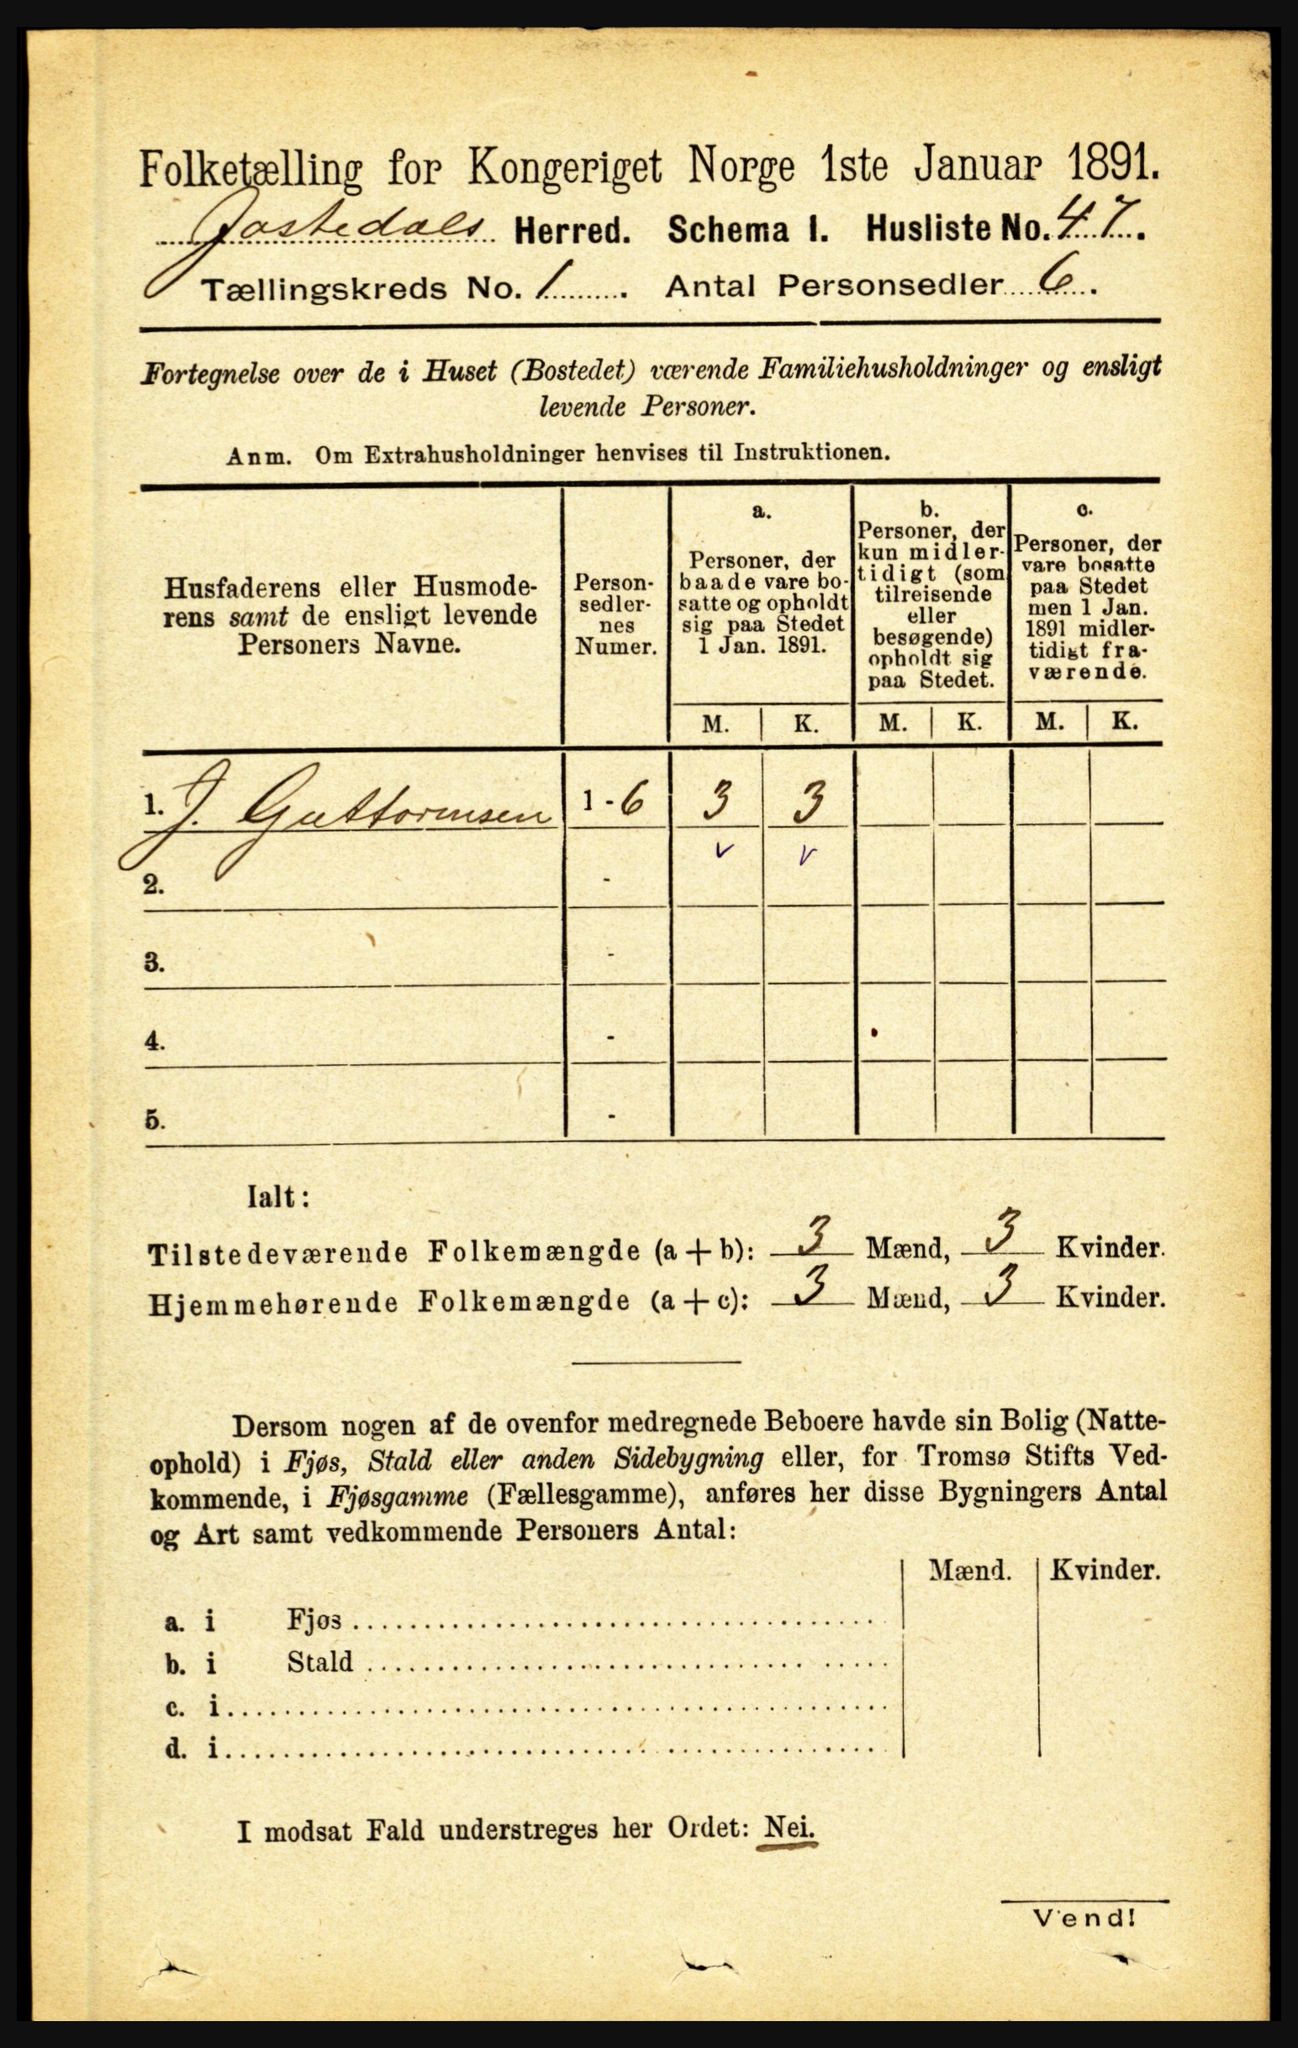 Folketælling for Kongeriget Norge 1ste Januar 1891.
Jostedals Herred. Schema I. Husliste No. 47.
Tællingskreds No. 1. Antal Personsedler 6.
Fortegnelse over de i Huset (Bostedet) værende Familiehusholdninger og ensligt
levende Personer.
Anm. Om Extrahusholdninger henvises til Instruktionen.
Husfaderens eller Husmode-
rens samt de ensligt levende
Personers Navne.
Person-
sedler-
nes
Numer.
a.
Personer, der
baade vare bo-
satte og opholdt
sig paa Stedet
1 Jan. 1891.
b.
Personer, der
kun midler-
tidigt (som
tilreisende
eller
besøgende)
opholdt sig
paa Stedet.
c.
Personer, der
vare bosatte
paa Stedet
men 1 Jan.
1891 midler-
tidigt fra-
værende.
M. K. M. K. M. K.
1. J. Guttormsen 1 - 6 3 3
v v
2. -
3. -
4. -
5. -
Ialt:
Tilstedeværende Folkemængde (a + b): 3 Mænd, 3 Kvinder.
Hjemmehørende Folkemængde (a + c): 3 Mænd, 3 Kvinder.
Dersom nogen af de ovenfor medregnede Beboere havde sin Bolig (Natte-
ophold) i Fjøs, Stald eller anden Sidebygning eller, for Tromsø Stifts Ved-
kommende, i Fjøsgamme (Fællesgamme), anføres her disse Bygningers Antal
og Art samt vedkommende Personers Antal:
Mænd. Kvinder.
a. i Fjøs
b. i Stald
c. i
d. i
I modsat Fald understreges her Ordet: Nei.
Vend!